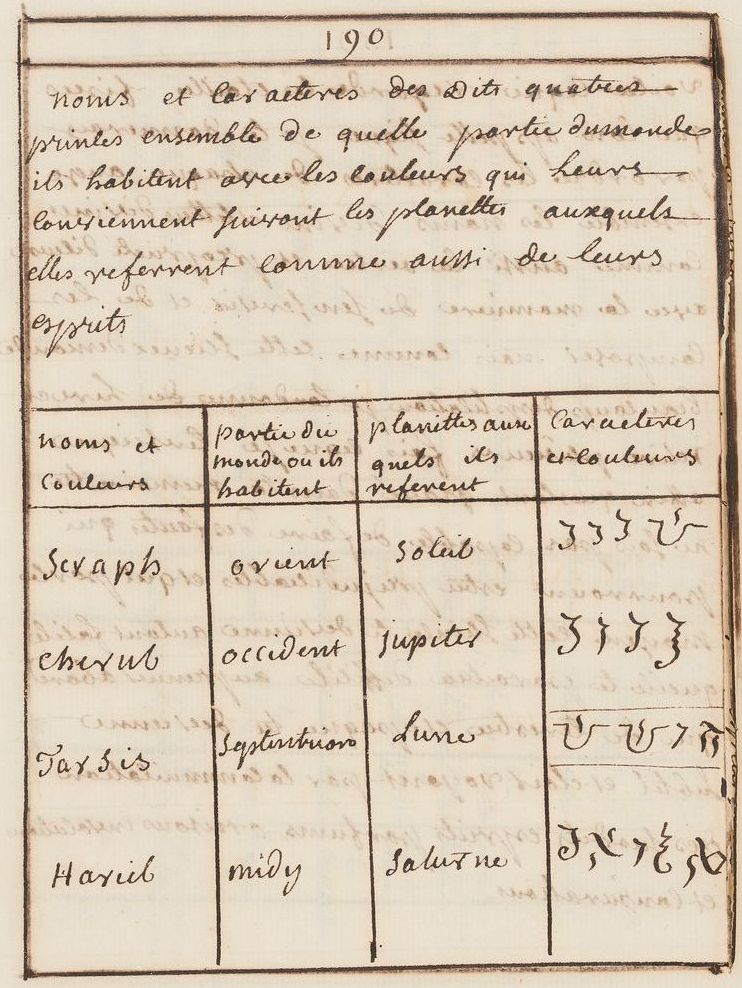 190
noms et Caracteres des Dits quatres
princes ensemble de quelle partie dumonde
ils habitent avec les couleurs qui heurs
Conviennent suivant les planettes auxquels
elles referrent comme aussi de leurs
esprits
noms et
couleurs
partie du
monde ou ils
habitent
planettes aux
quels ils
referent
Caracteres
et couleurs
Seraph orient Soleil
Cherub occident Jupiter
Tarsis Septentrion Lune
Hariel midy Saturne